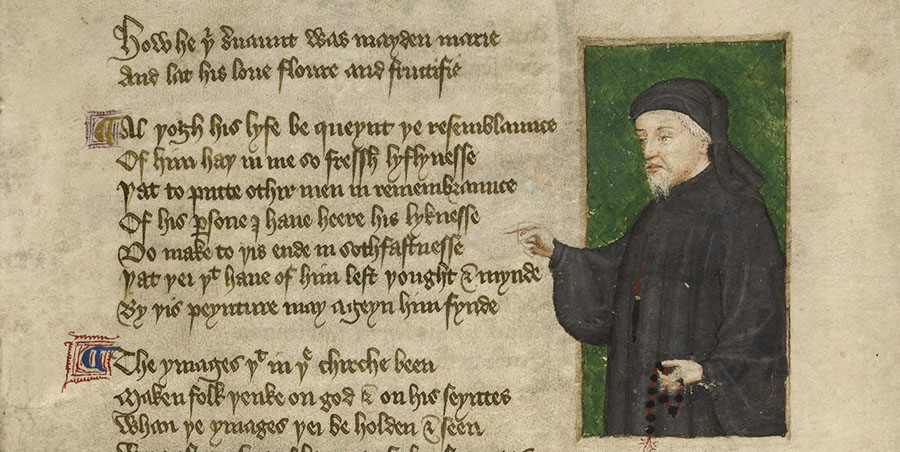 How he yͬ s̾uaunt was mayden marie
And lat his loue floure and fructifie
Al yogh his lyfe be queynt ye resemblaunce
Of him hay in me so fressh lyflynesse
Yat to putte othir men in remembraunce
Of his ꝑsone I haue heere his lyknesse
Do make to yis ende in sothfastnesse
Yat yei yͭ haue of him left yought & mynde
By yis peynture may ageyn him fynde
The ymages yͭ in yͬ chirche been
Maken folk yenke on god & on his seyntes
Whan ye ymages yei be holden & seen